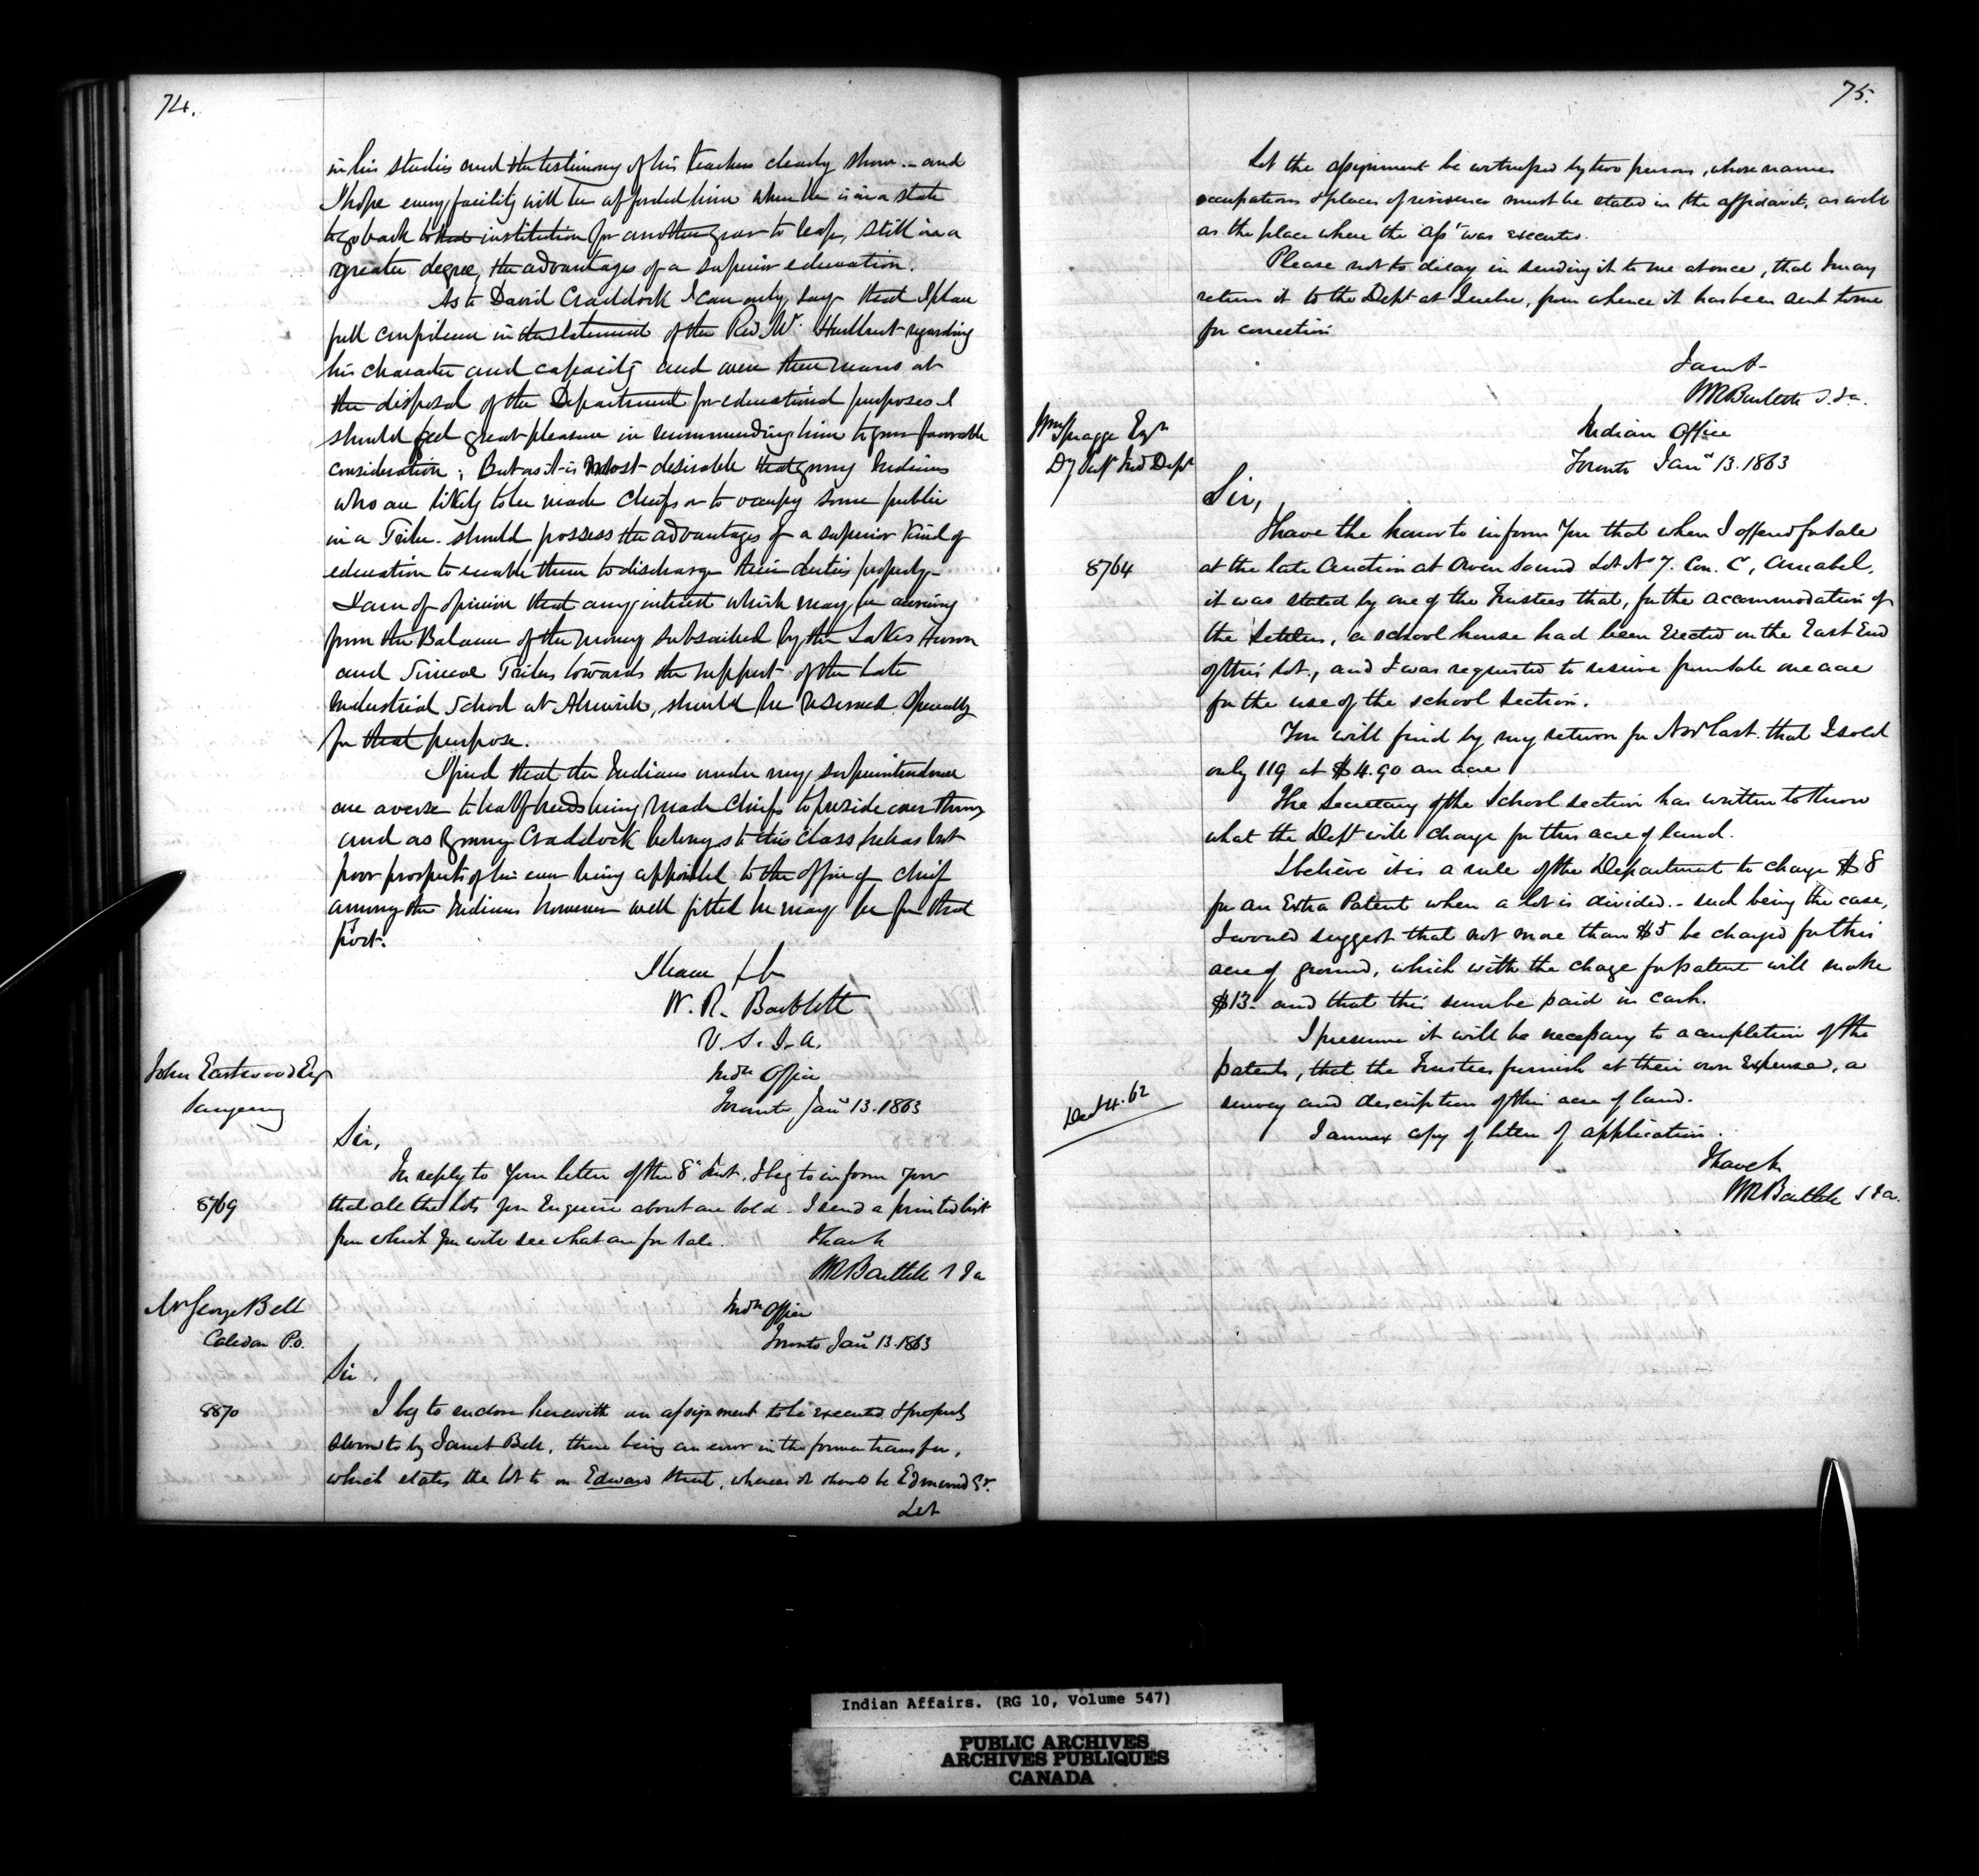 74.
in his studies and the testimony of his teachers clearly show - and
I hope every facility will be afforded him when he is in a state
to go back to that institution for another year to reap, still in a
greater degree, the advantages of a superior education.
As to David Craddock I can only say that I place
full confidence in the statement of the Rev. Mr. Hurlburt regarding
his character and capacity and were there means at
the disposal of the Department for educational purposes I
should feel great pleasure in recommending him to your favorable
consideration; But as it is most desirable that young Indians
who are likely to be made Chiefs or to occupy some public
in a Tribe should possess the advantages of a superior kind of
education to enable them to discharge their duties properly -
I am of opinion that any interest which may be accruing
from the Balance of the money subscribed by the Lakes Huron
and Simcoe Tribes towards the support of the late
Industrial School at Alnwick, should be reserved specially
for that purpose.
I find that the Indians under my superintendence
are averse to half breeds being made Chiefs to preside over them
and as young Craddock belongs to this class he has but
poor prospects of his ever being appointed to the office of chief
among the Indians however well fitted he may be for that
post.
I have &c
W. R. Bartlett
V. S. I. A.
John Eastwood Esq
Saugeeng
Indn Office
Toronto, Jany 13. 1863
Sir,
In reply to your letter of the 8th Inst. I beg to inform you
8769
that all the lots you Enquire about are sold - I send a printed list
from which you will see what are for sale.
I have &c
WR Bartlett S I a
Mr George Bell
Caledon P.O.
Indn Office
Toronto Jany 13. 1863
Sir,
8870
I beg to enclose herewith an assignment to be executed & properly
sworn to by Janet Bell, there being an error in the former transfer,
which states the lot to on Edward Street, whereas it should be Edmund St.
Let
75.
Let the assignment be witnessed by two persons, whose names
occupations & places of residence must be stated in the affidavit, as well
as the place where the asst was executed.
Please not to delay in sending it to me at once, that I may
return it to the Dept at Quebec, from whence it has been sent to me
for correction
I am &c
WR Bartlett S. I a.
Wm Spragge Esqr
Dy Supt Ind Dept
Indian Office
Toronto Jany 13. 1863
Sir,
I have the honor to inform you that when I offered for sale
8764
at the late Auction at Owen Sound Lot No 7. Con. C, Amabel,
it was stated by one of the Trustees that, for the accommodation of
the settlers, a school house had been Erected on the East End
of this lot, and I was requested to reserve from sale one acre
for the use of the school section.
You will find by my return for Novr last that I sold
only 119 at $4.90 an acre
The Secretary of the School section has written to know
what the Dept will charge for this acre of land.
I believe it is a rule of the Department to charge $8
for an Extra Patent when a lot is divided. - such being the case,
I would suggest that not more than $5 be charged for this
acre of ground, which with the charge for patent will make
$13 - and that this sum be paid in cash.
I presume it will be necessary to a completion of the
patents, that the Trustees furnish at their own Expense, a
Decr 4. 62
survey and description of this acre of land.
I annex copy of letter of application.
I have &c
WR Bartlett S I a.
Indian Affairs. (RG 10, Volume 547)
PUBLIC ARCHIVES
ARCHIVES PUBLIQUES
CANADA